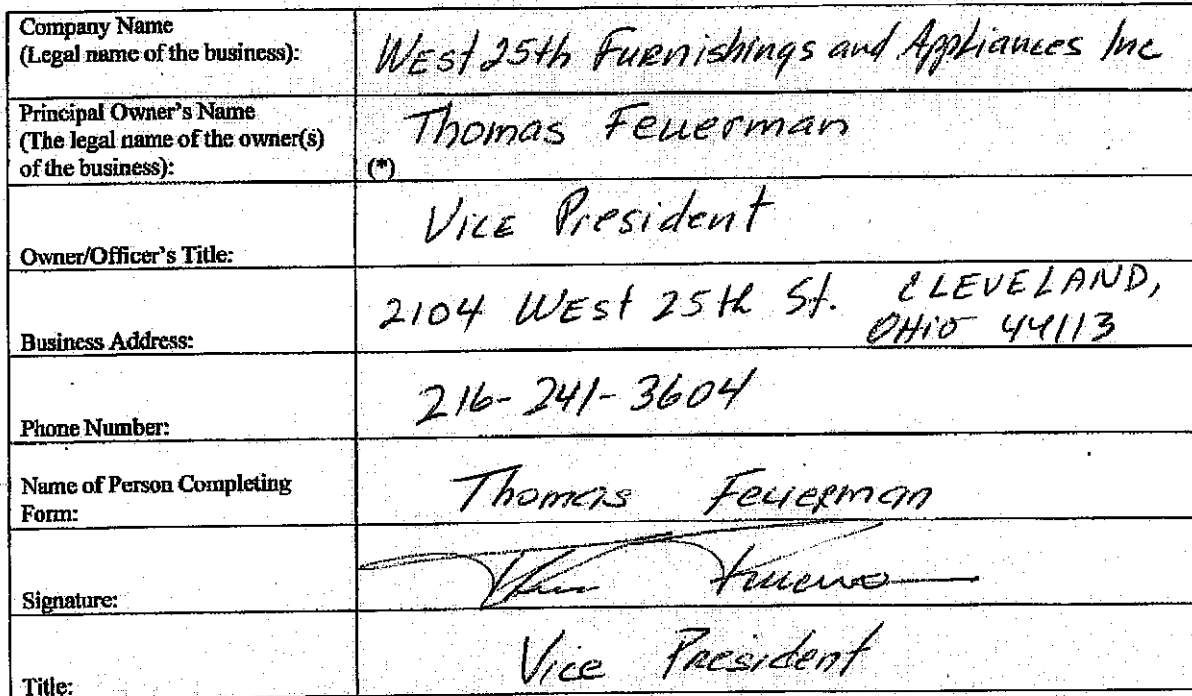 Company Name
(Legal name of the business):
West 25th Furnishings and Appliances Inc
Principal Owner's Name
(The legal name of the owner(s)
of the business):
Thomas Feuerman
(*)
Owner/Officer's Title:
Vice President
Business Address:
2104 West 25th St. CLEVELAND,
OHIO 44113
Phone Number:
216-241-3604
Name of Person Completing
Form:
Thomas Feuerman
Signature:
Title:
Vice President